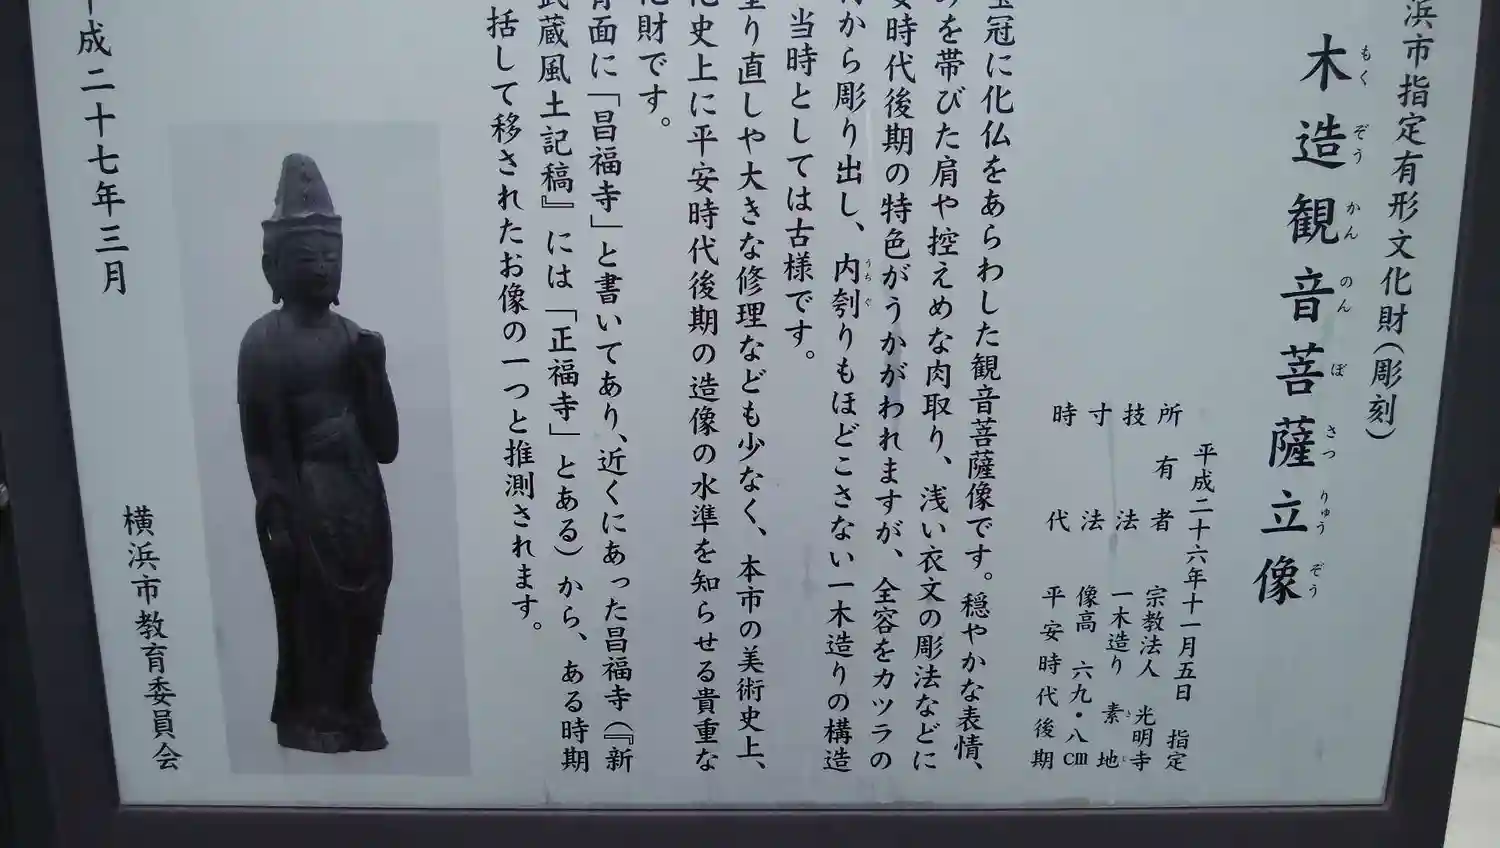 浜市指定有形文化財(彫刻)
木造観音菩薩立像
もく ぞう かん のん ぼ さつ りゅう ぞう
平成二十六年十一月五日 指定
所有者 宗教法人 光明寺
技法 一木造り 素地
きじ
寸法 像高 六九・八cm
時代 平安時代後期
宝冠に化仏をあらわした観音菩薩像です。穏やかな表情、
みを帯びた肩や控えめな肉取り、浅い衣文の彫法などに
安時代後期の特色がうかがわれますが、全容をカツラの
から彫り出し、内刳りもほどこさない一木造りの構造
うちぐ
当時としては古様です。
塗り直しや大きな修理なども少なく、本市の美術史上、
化史上に平安時代後期の造像の水準を知らせる貴重な
化財です。
背面に「昌福寺」と書いてあり、近くにあった昌福寺(『新
武蔵風土記稿』には「正福寺」とある)から、ある時期
括して移されたお像の一つと推測されます。
平成二十七年三月
横浜市教育委員会